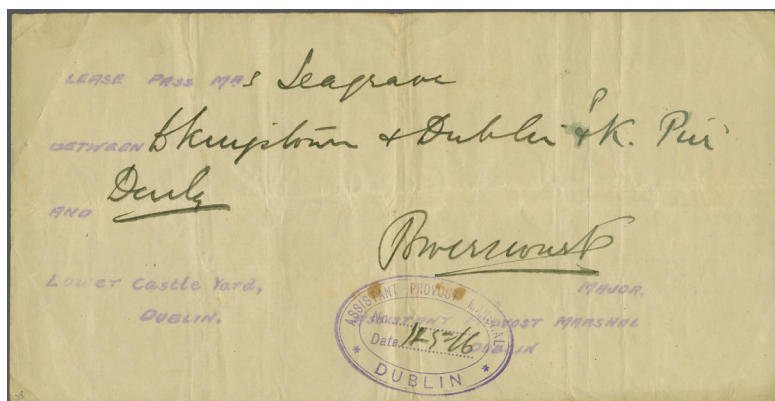 LEASE PASS MRS Seagrave
BETWEEN Kingstown & Dublin & K. Pier
AND Daily
Powerscourt
Lower Castle Yard,
DUBLIN.
MAJOR.
ASSISTANT PROVOST MARSHAL
DUBLIN
ASSISTANT PROVOST MARSHAL
No.
Date 12-5-16
* DUBLIN *